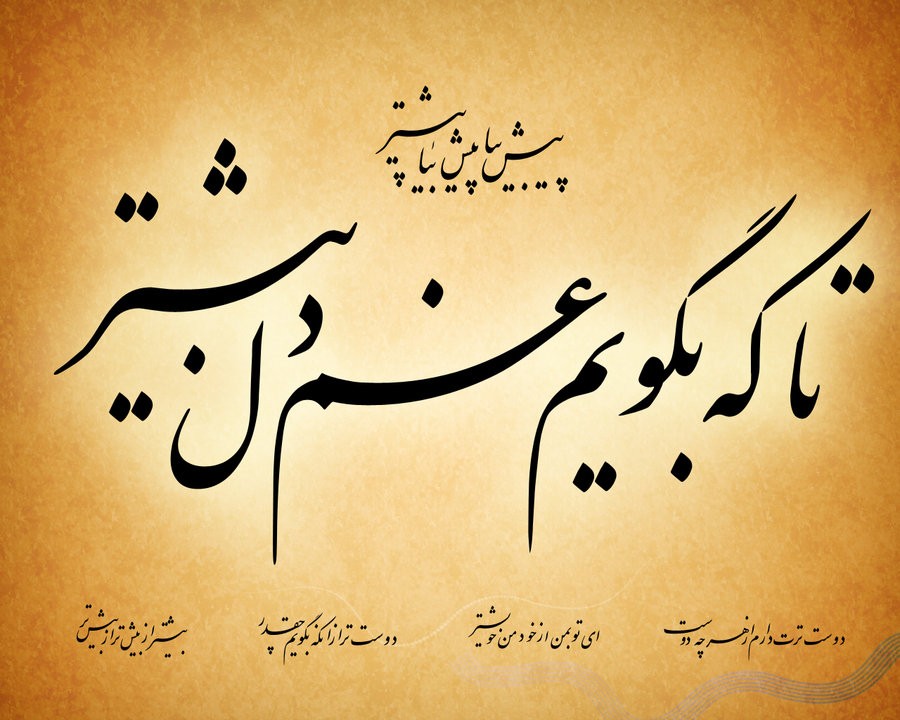 پیش بیا پیش بیا پیشتر
تا که بگویم غم دل بیشتر
دوست ترت دارم از هر چه دوست
ای تو بمن از خود من خویشتر
دوست تر از آنکه بگویم چقدر
بیشتر از بیش تر از بیش تر